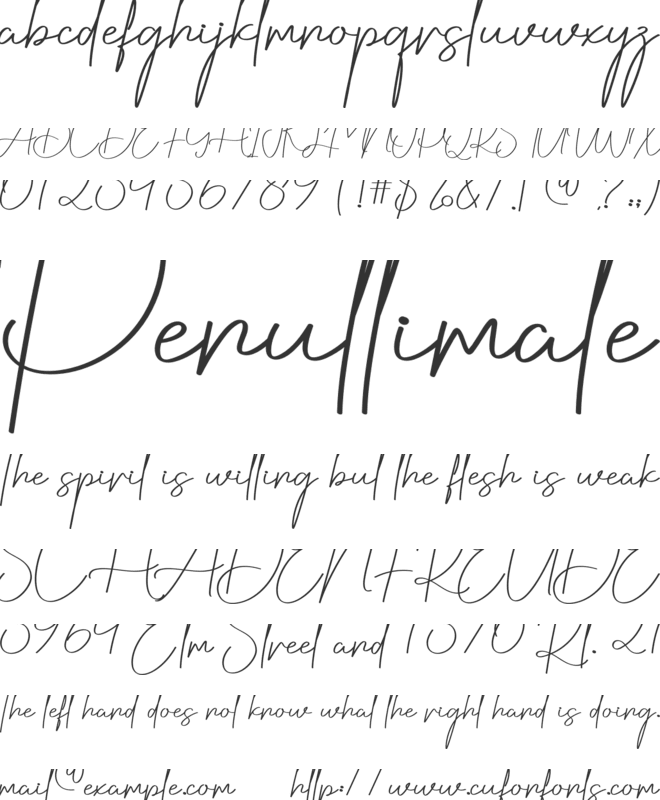 abcdefghijklmnopqrstuvwxyz
ABCDEFGHIJKLMNOPQRSTUVWX
0123456789 (!#$%&/.| @ ? :;)
Penultimate
The spirit is willing but the flesh is weak
SCHADENFREUDE
3964 Elm Street and 1370 Rt. 21
The left hand does not know what the right hand is doing.
mail@example.com http://www.cufonfonts.com